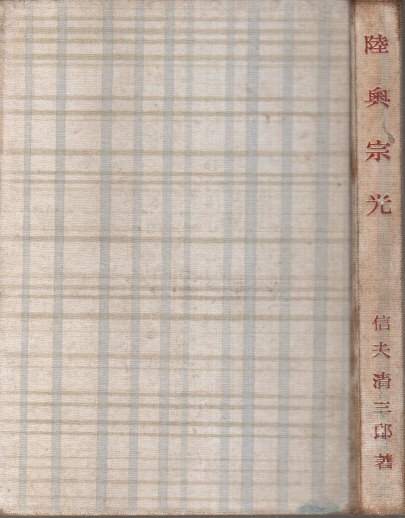 陸奥宗光
信夫清三郎著